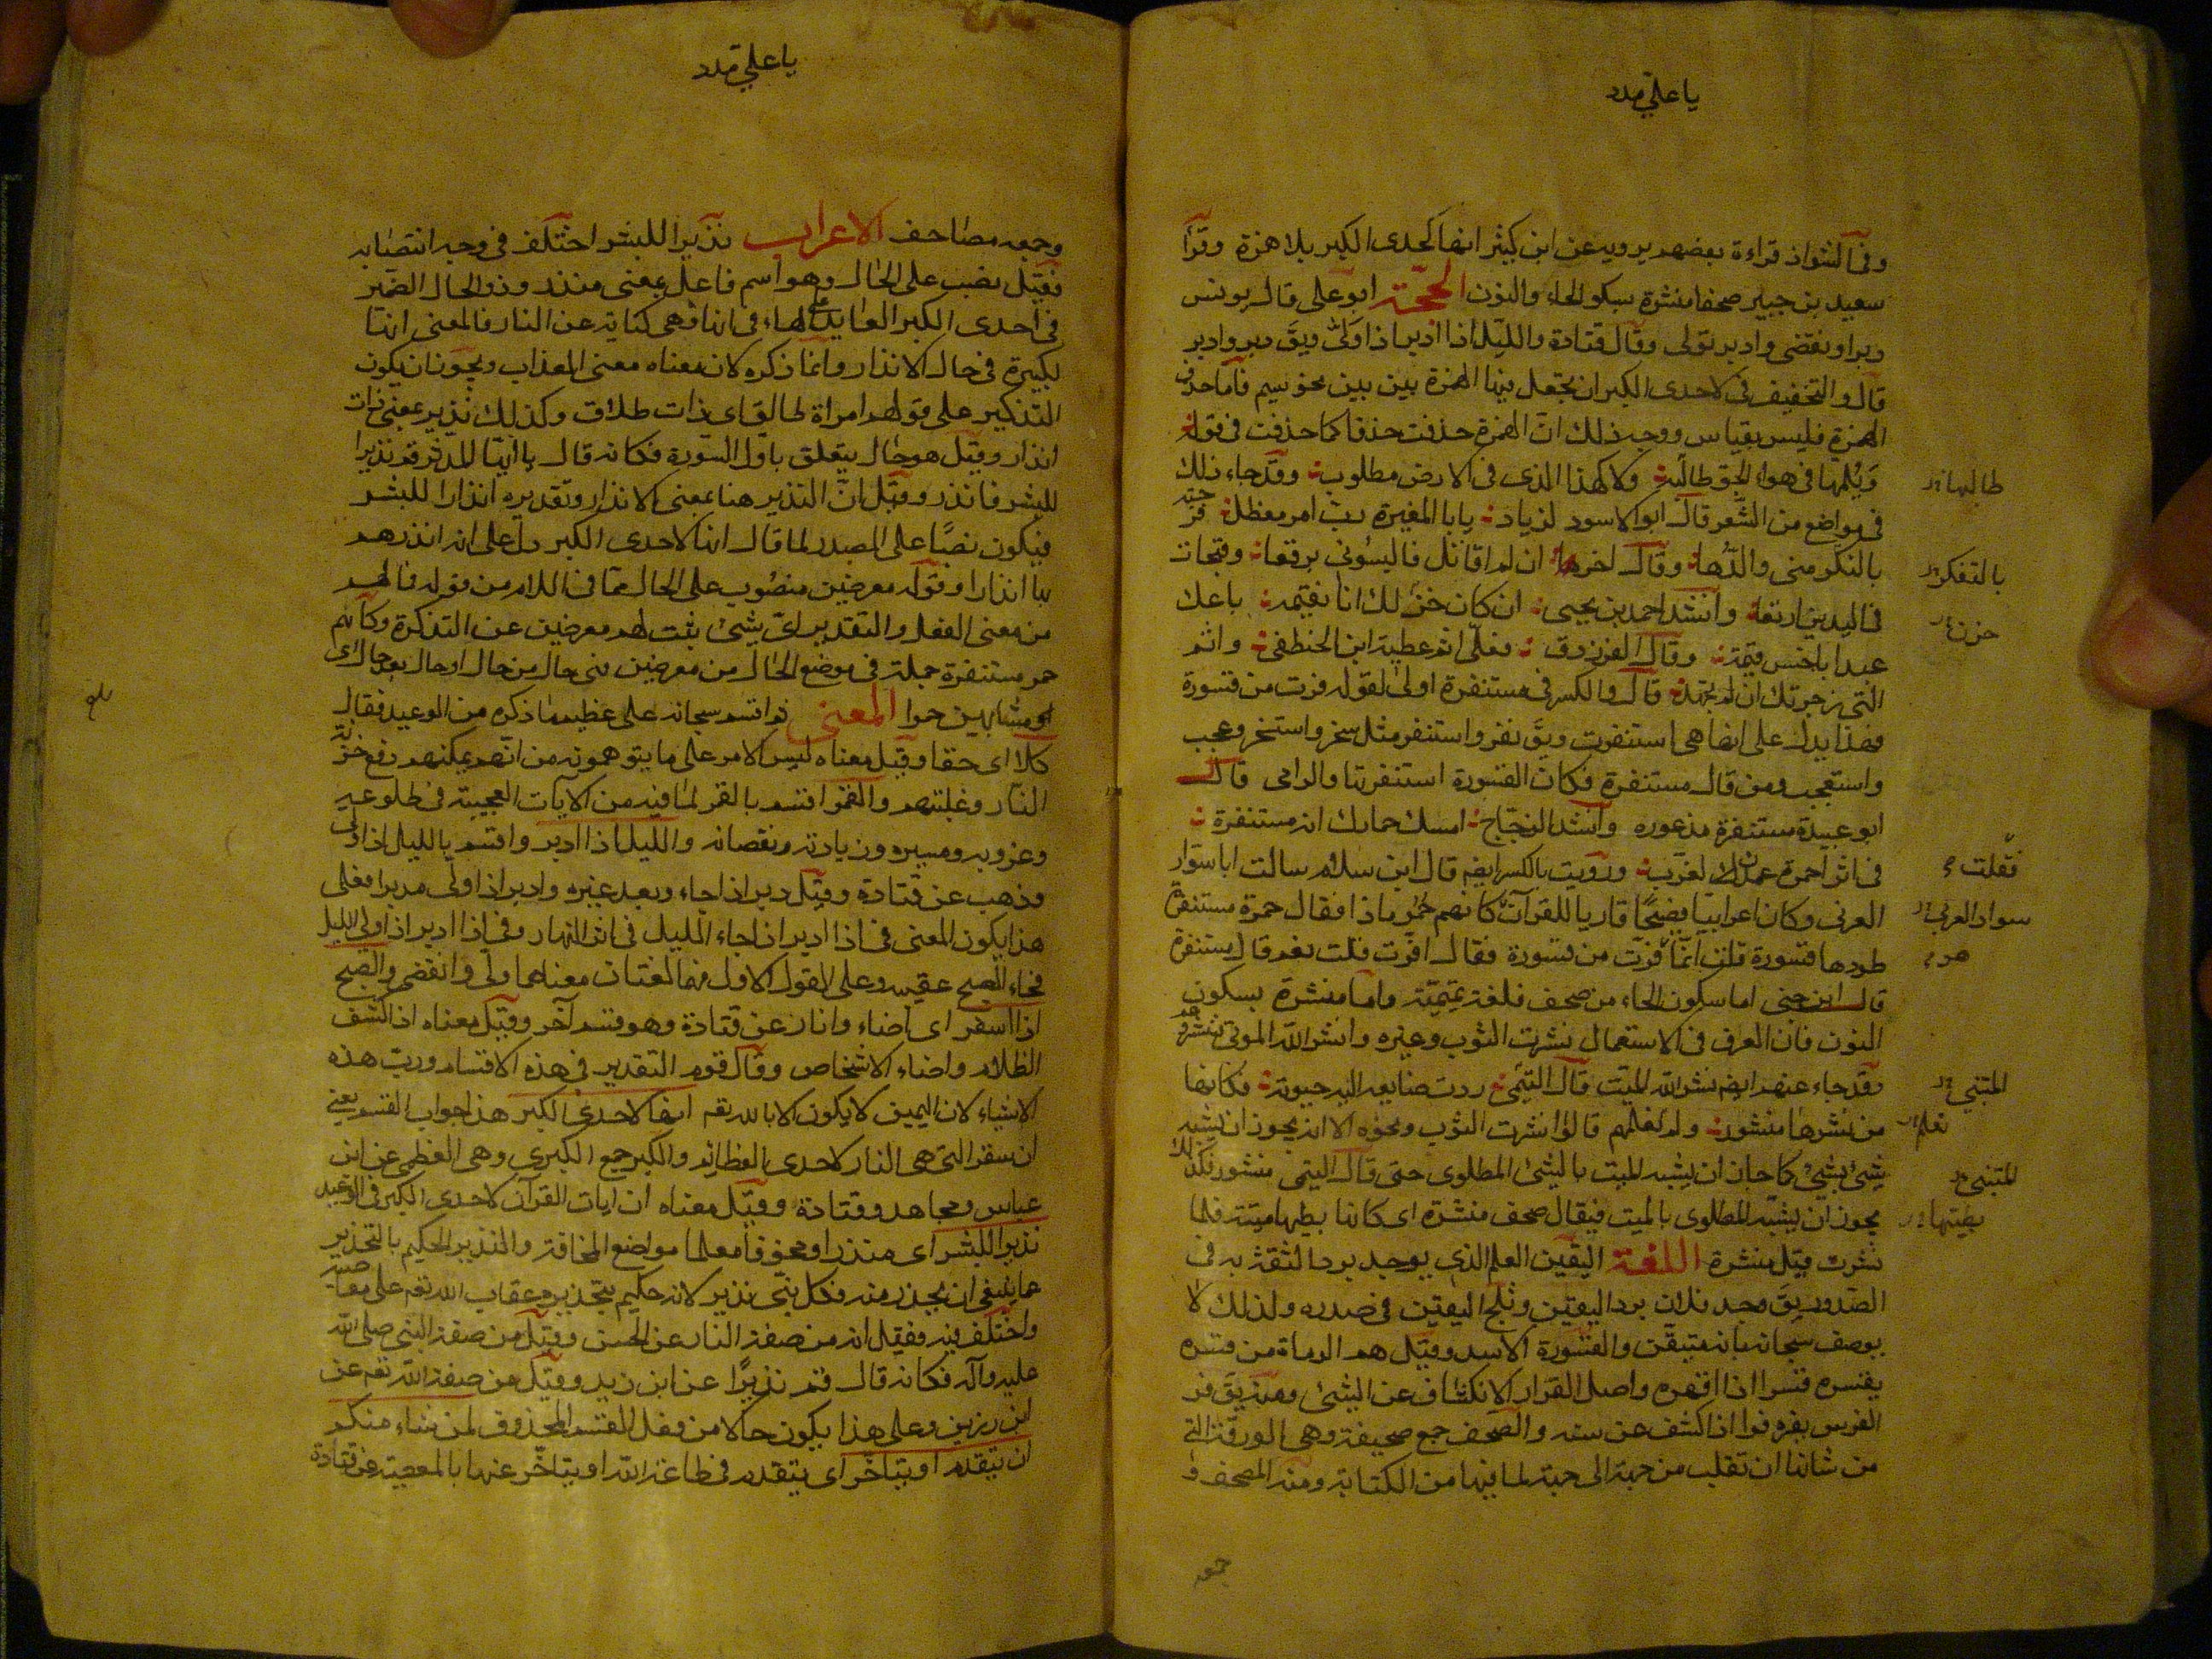 ياعلي مدد
وفى الشواذ قراءة بعضهم يرويه عن ابن كثير انها لحدى الكبر بلا همزة وقرأ
سعيد بن جبير صحفا منشرة بسكو الحاء والنون الحجّة ابو على قال يونس
دبر اى نقضى وادبر تولى وقال قتادة والليل اذا ادبر اذا ولّى ويق دبر وادبر
قال والتخفيف فى لاحدى الكبر ان يجعل فيها الهمزة بين بين نحو سيم فاما حذف
الهمزة فليس بقياس ووجه ذلك انّ الهمزة حذفت حذفا كما حذفت فى قوله
وَيْلُمّها فى هواء الجو طالبة ولا كهذا الذى فى الارض مطلوب وقد جاء ذلك
طالبها
فى مواضع من الشعر قال ابو الاسود لزياد يابا المغيرة رب امر معظل فرجته
بالنكر منى والدّها وقال اخر ان لم اقاتل فالبسونى برقعا وفتحات
بالتفكر
فى اليدين اربعا وانشد احمد بن يحيى ان كان حزن لك انا نفيمه باعك
حزن
عبدا باخس قيمة وقال الفرزدق فعلّى اثم عطية ابن الخطفى واثم
التى زجرتك ان لم تجهد قال والكسر فى مستنفرة اولى لقوله فرت من قسورة
فهذا يدل على انها هى استنفرت ويق نفر واستنفر مثل سخر واستسخر وعجب
واستعجب ومن قال مستنفرة فكان القسورة استنفرتها والرامى قال
ابو عبيدة مستنفرة مذعورة وانشد الزجاج امسك حمارك انه مستنفرة
فى اثر احمرة عمدن لغرّب ورويت بالكسر ايضه قال ابن سلام سالت ابا سوّار
فقلت
العرنى وكان اعرابيا فصيحًا قاريا للقرآن كانهم حُمُر ماذا فقال حمرة مستنفرة
سوار العربى
طردها قسورة قلت انّما فرّت من قسورة فقال افرّت قلت نعم قال مستنفرة
قال ابن جنى اما سكون الحاء من صحف فلغة تميمية واما منشرة بسكون
النون فان العرف فى الاستعمال نشرت الثوب وغيره وانشر الله الموتى
وقد جاء عنهم ايضه نشر الله الميّت قال التيمى ردت صنايعه اليه حيوته فكانها
المتبنى
من نشرها منشور ولم نعلمهم قالوا انشرت الثوب ونحوه الا انه يجوز ان يشبه
نعلم
شئ بشئ كما جاز ان يشبه الميت بالشئ المطلوى حتى قال التيمى منشور فكذلك
المتبنى
يجوز ان يشبّه المطلوى بالميت فيقال صحف منشرة اى كانها بطيها ميتة فلما
بطيتها
نشرت قيل منشرة اللغة اليقين العلم الذى يوجد برد الثقة به فى
الصدور يق وجد فلان برد اليقين وثلج اليقين فى صدره ولذلك لا
يوصف سبحانه بانه متيقن والقسورة الاسد وقيل هم الرماة من قسره
يقسره قسرا اذا قهره واصل الفرار الانكشاف عن الشئ ومنه يق فر
الفرس يفره فرا اذا كشف عن سنه والصحف جمع صحيفة وهى الورقة التى
من شانها ان تقلب من جهة الى جهة لما فيها من الكتابة ومنه المصحف و
ياعلي مدد
وجمعه مصاحف الاعراب نذيرا للبشر اختلف فى وجه انتصابه
فقيل نصب على الحال وهو اسم فاعل بمعنى منذر وذو الحال الضمير
فى احدى الكبر العايد الى الهاء فى انها وهى كناية عن النار فالمعنى انها
لكبيرة فى حال الانذار وانما ذكره لان معناه معنى العذاب ويجوز ان يكون
التذكير على قولهم امراة طالق اى ذات طلاق وكذلك نذير بمعنى ذات
انذار وقيل هو حال يتعلق باول السورة فكانه قال يا ايها المدثر قم نذيرا
للبشر فانذر وقيل انّ النذير هنا بمعنى الانذار وتقديره انذارا للبشر
فيكون نصبًا على المصدر لما قال انها لاحدى الكبر دل على انه انذرهم
بها انذارا وقوله معرضين منصوب على الحال مما فى اللام من قوله فما لهم
من معنى الفعل والتقدير اىّ شئ ثبت لهم معرضين عن التذكرة وكانهم
حمر مستنفرة جملة فى موضع الحال من معرضين هى حال من حال او حال بعد حال اى
مشابهين حمرا المعنى ثم اقسم سبحانه على عظيم ما ذكره من الوعيد فقال
كلا اى حقا وقيل معناه ليس الامر على ما يتوهمونه من انّهم يمكنهم دفع خزنة
النار وغلبتهم والقمر اقسم بالقمر لما فيه من الايات العجيبة فى طلوعه
وغروبه ومسيره وزيادته ونقصانه والليل اذا ادبر واقسم بالليل اذا ولى
وذهب عن قتادة وقيل دبر اذا جاء وبعد غيره وادبر اذا ولّى مدبرا فعلى
هذا يكون المعنى فى اذا ادبر اذا جاء الليل فى اثر النهار وفى اذا ادبر اذا ولى الليل
فجاء الصبح عقيبه وعلى القول الاول فهما لغتان معناهما ولّى وانقضى والصبح
اذا اسفر اى اضاء وانار عن قتادة وهو قسم آخر وقيل معناه اذا كشف
الظلام واضاء الاشخاص وقال قوم التقدير فى هذه الاقسام ورب هذه
الاشياء لان اليمين لا يكون الا بالله تعم انها لاحدى الكبر هذا جواب القسم يعنى
ان سقر التى هى النار لاحدى العظائم والكبر جمع الكبرى وهى العظمى عن ابن
عباس ومجاهد وقتادة وقيل معناه ان ايات القرآن لاحدى الكبر فى الوعيد
نذيرا للبشر اى منذرا ومخوفا معلما مواضع المخافة والنذير الحكيم بالتحذير
عما ينبغى ان يحذر منه فكل نبى نذير لانه حكيم بتحذيره عقاب الله تعم على معاصيه
واختلف فيه فقيل انه من صفة النار عن الحسن وقيل من صفة النبى صلى الله
عليه وآله فكانه قال قم نذيرًا عن ابن زيد وقيل من صفة الله تعم عن
ابن رزين وعلى هذا يكون حالا من فعل القسم المحذوف لمن شاء منكم
ان يتقدم او يتاخر اى يتقدم فى طاعة الله او يتاخر عنها بالمعصية عن قتادة